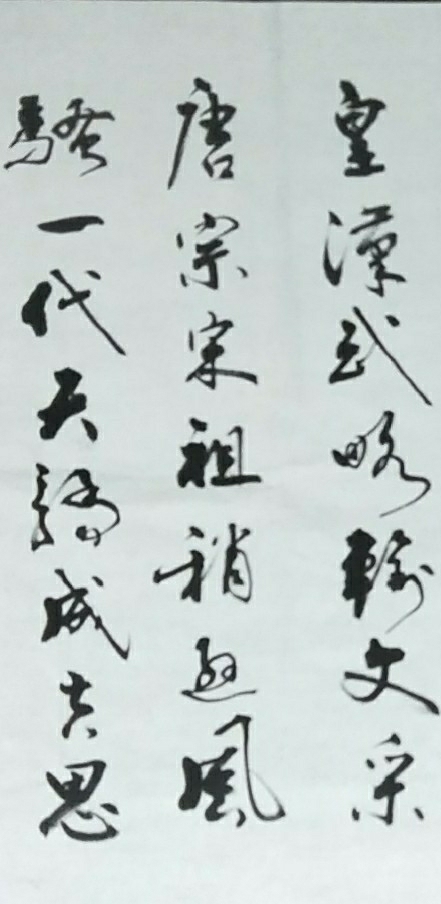 皇漢武略輸文采
唐宗宋祖稍遜風
騷一代天驕成吉思